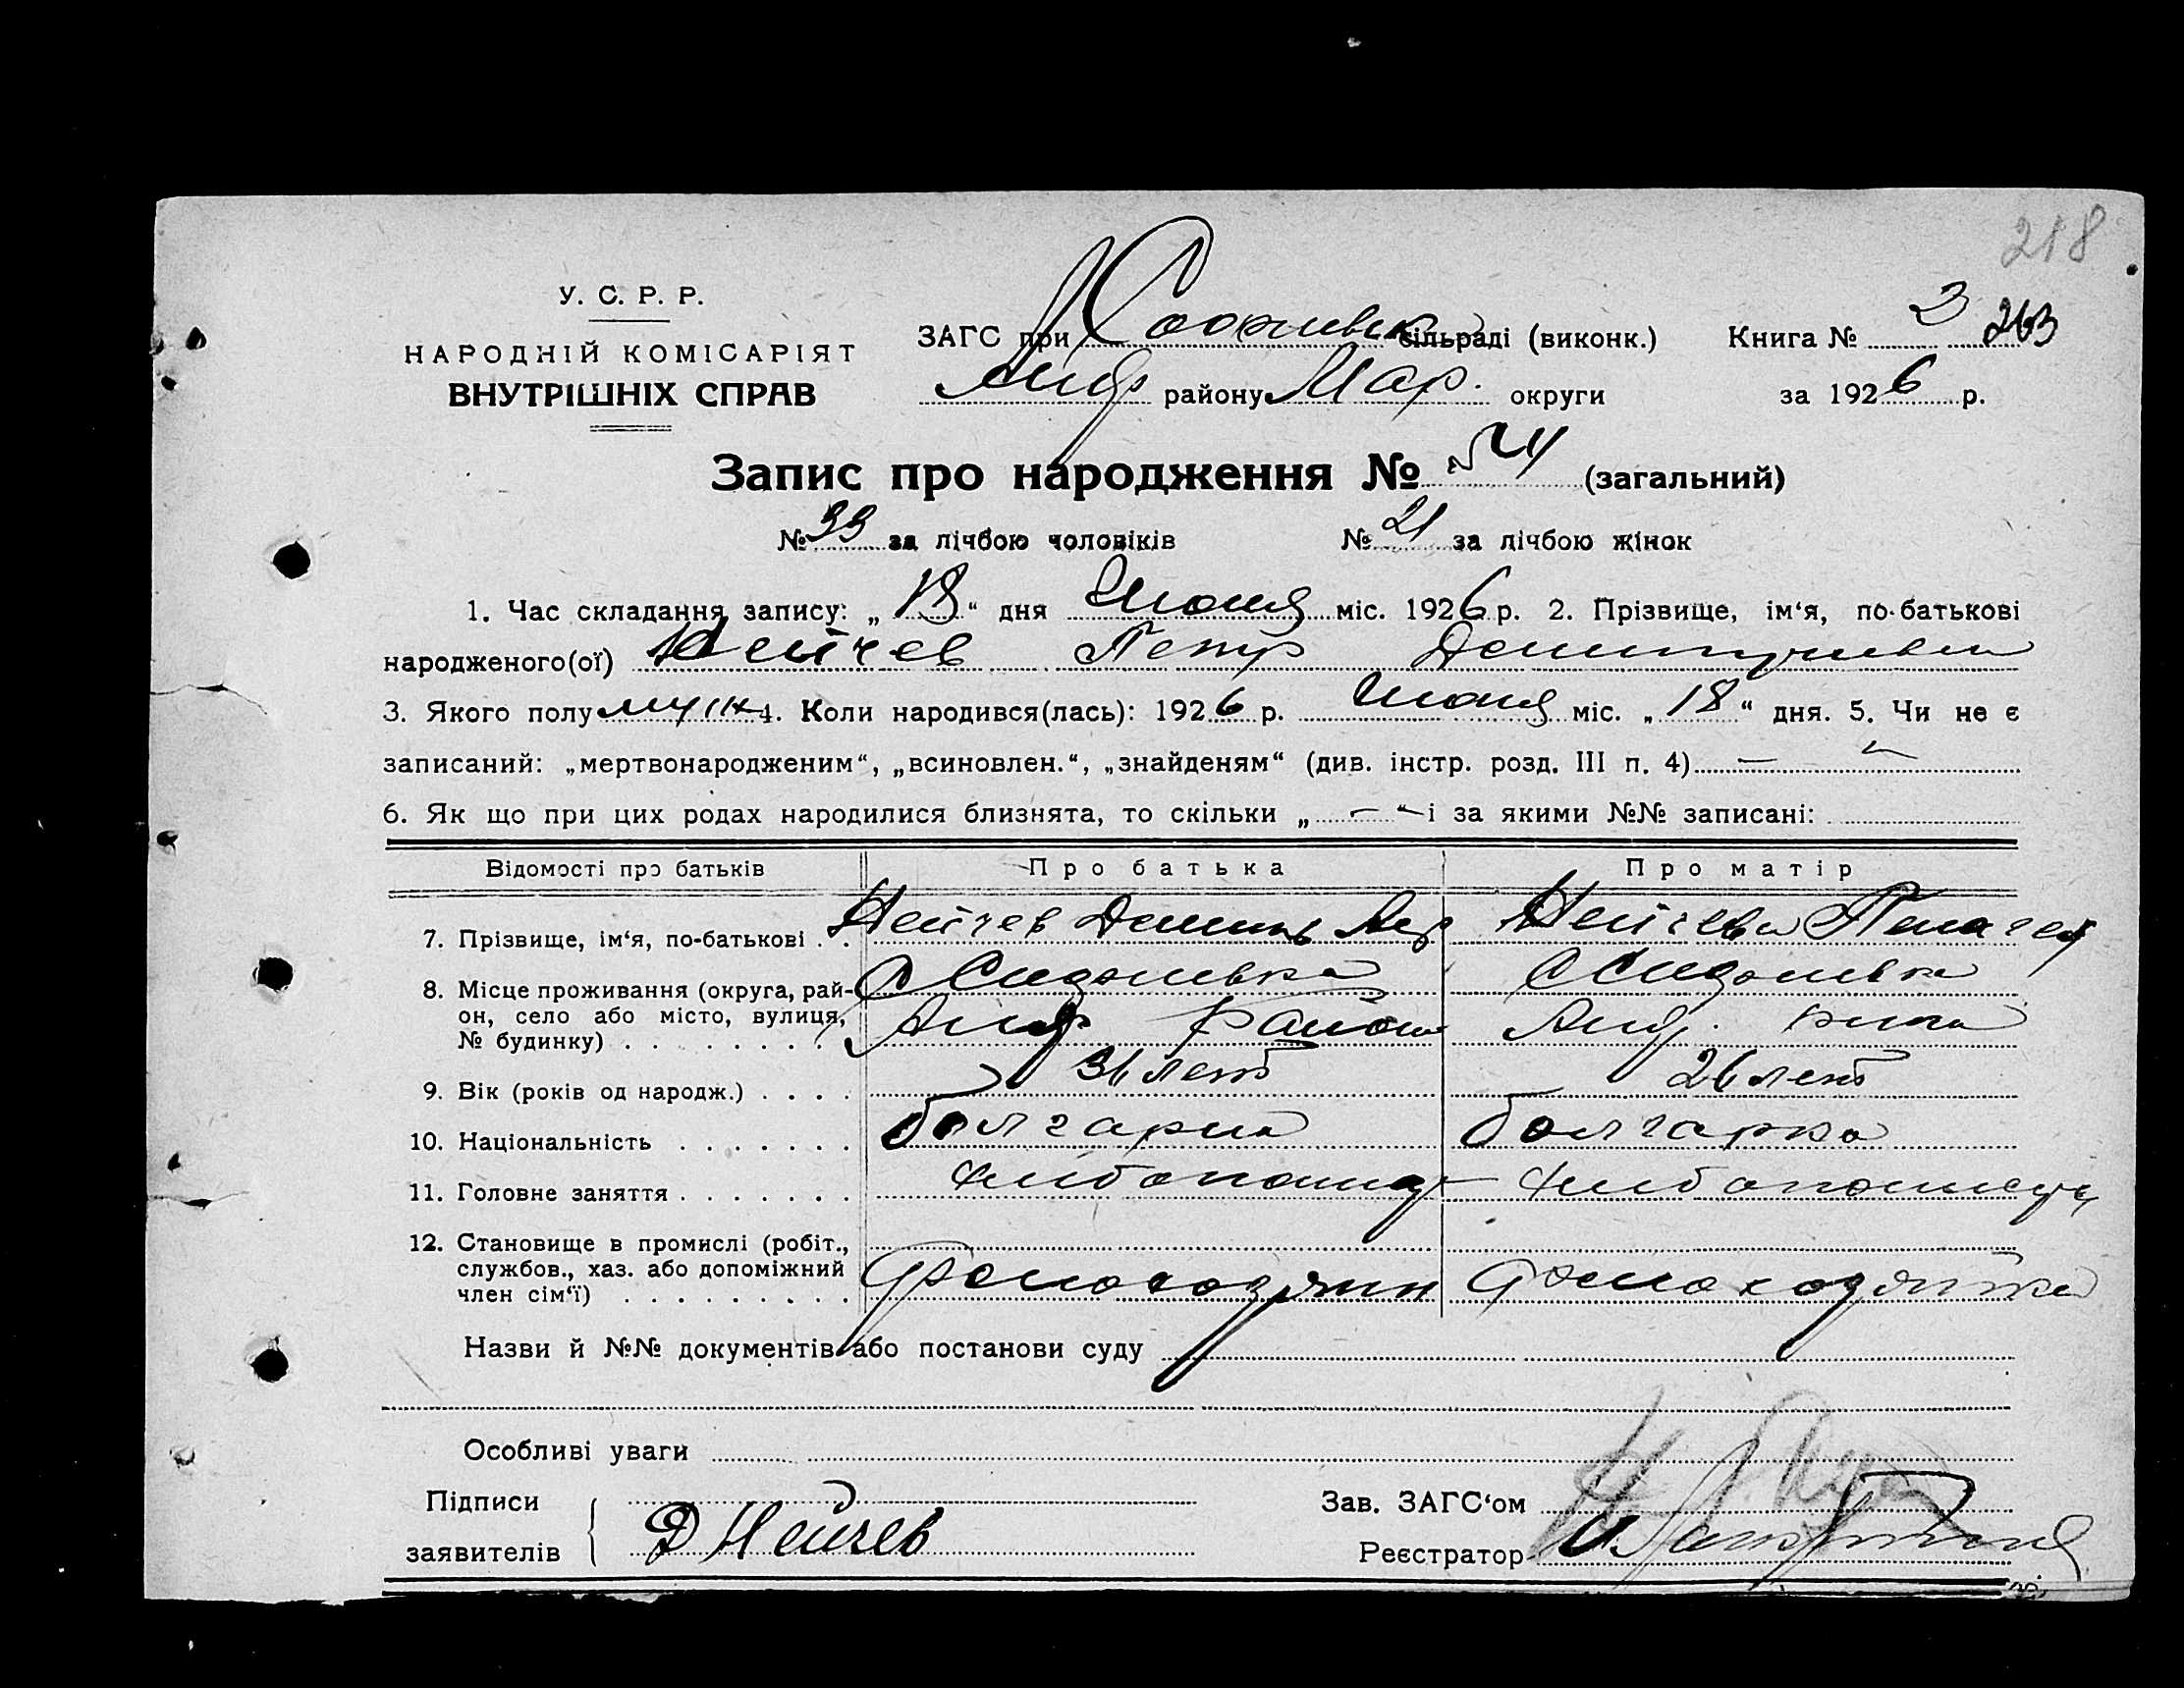 218
У. С. Р. Р.
НАРОДНІЙ КОМІСАРІЯТ
ВНУТРІШНІХ СПРАВ
ЗАГС при сільраді (виконк.) Книга № 3 263
Анд району Мар. округи за 1926 р.
Запис про народження № 54 (загальний)
№ 33 за лічбою чоловіків № 21 за лічбою жінок
1. Час складання запису: „ 18 “ дня Июня міс. 1926 р. 2. Прізвище, ім‘я, по-батькові
народженого(ої) Нейчев Петр
3. Якого полу муж 4. Коли народився(лась): 1926 р. Июня міс. „ 18 “ дня. 5. Чи не є
записаний: „мертвонародженим“, „всиновлен.“, „знайденям“ (див. інстр. розд. III п. 4) —
6. Як що при цих родах народилися близнята, то скільки „ — “ і за якими №№ записані:
Відомості про батьків Про батька Про матір
7. Прізвище, ім‘я, по-батькові . . Нейчев Нейчева Пелагея
8. Місце проживання (округа, рай-
он, село або місто, вулиця,
№ будинку) . . . . . . . .
9. Вік (років од народж.) . . . . лет 26 лет
10. Національність . . . . . . . болгарин болгарка
11. Головне заняття . . . . . . . хлибопашец
12. Становище в промислі (робіт.,
службов., хаз. або допоміжний
член сім‘ї) . . . . . . . . . домохозяин домохозяйка
Назви й №№ документів або постанови суду
Особливі уваги
Підписи Зав. ЗАГС‘ом
заявителів Д Нейчев Реєстратор